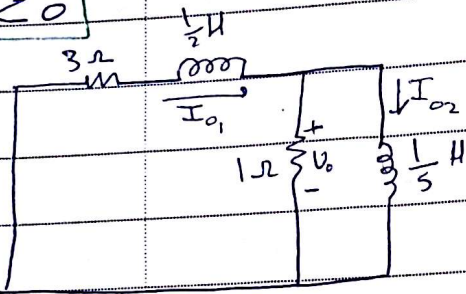 < 0
1/2 H
3 Ω
I₀₁
I₀₂
+
1 Ω V₀ 1/5 H
-